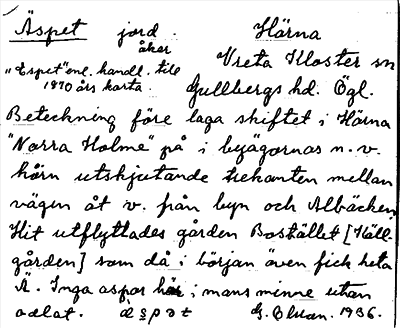 Äspet jord. Härna
åker
Vreta Kloster sn
"Espet" enl. handl. till
1870 års karta. Gullbergs hd. Ögl.
Beteckning före laga skiftet i Härna
"Norra Holme" på i byägornas n.v.
hörn utskjutande trekanten mellan
vägen åt v. från byn och Albäcken
Hit utflyttades gården Bostället [Käll-
gården] som då i början även fick heta
Ä. Inga aspar här i mans minne utan
odlat. G. Olson. 1936.